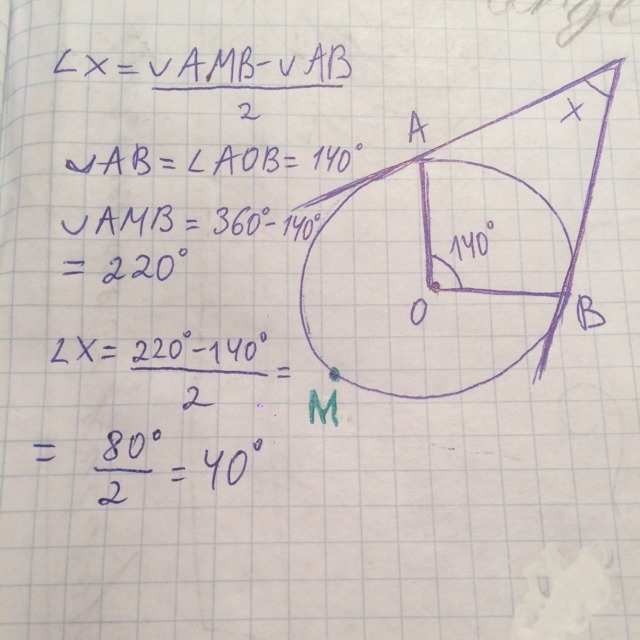 ∠X = ◡AMB - ◡AB
2
◡AB = ∠AOB = 140°
◡AMB = 360° - 140°
= 220°
∠X = 220° - 140° =
2
= 80° = 40°
2
A
X
140°
O
B
M